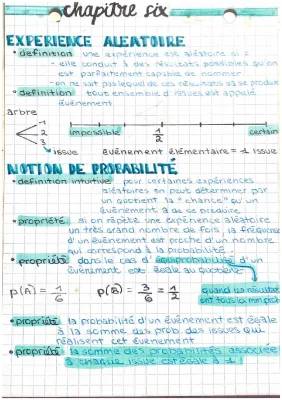 chapitre six
EXPERIENCE ALEATOIRE
• definition une expérience est aléatoire si :
- elle conduit à des résultats possibles qu'on
est parfaitement capable de nommer
- on ne sait pas lequel de ces résultats va se produire
• definition tout ensemble d'issues est appelé
évènement
arbre
impossible 1/2 certain
1
2
3 → issue évènement élémentaire = 1 issue
NOTION DE PROBABILITÉ
• definition intuitive pour certaines expériences
aléatoires on peut déterminer par
un quotient la "chance" qu'un
évènement a de se produire
• propriété si on répète une expérience aléatoire
un très grand nombre de fois, la fréquence
d'un évènement est proche d'un nombre
qui correspond à la probabilité
• propriété dans le cas d'équiprobabilité d'un
évènement est égale au quotient
p(A) = 1/6 p(B) = 3/6 = 1/2 quand les résultats
ont tous la m
• propriété la probabilité d'un évènement est égale
à la somme des prob des issues qui
réalisent cet évènement
• propriété la somme des probabilités associée
à chaque issue est égale à 1